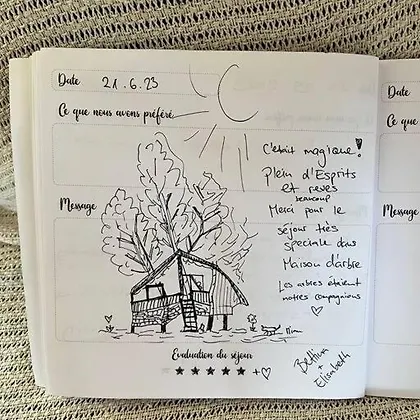 Date 21.6.23
Date
Ce que nous avons préféré
Ce que
C'était magique!
Plein d'Esprits
et reves
beaucoup
Merci pour le
séjour très
speciale dans
Maison d'arbre
Les arbres étaient
notres compagnions
Message
Message
Evaluation du séjour
★★★★★ + ♡
Bettina
+
Elisabeth